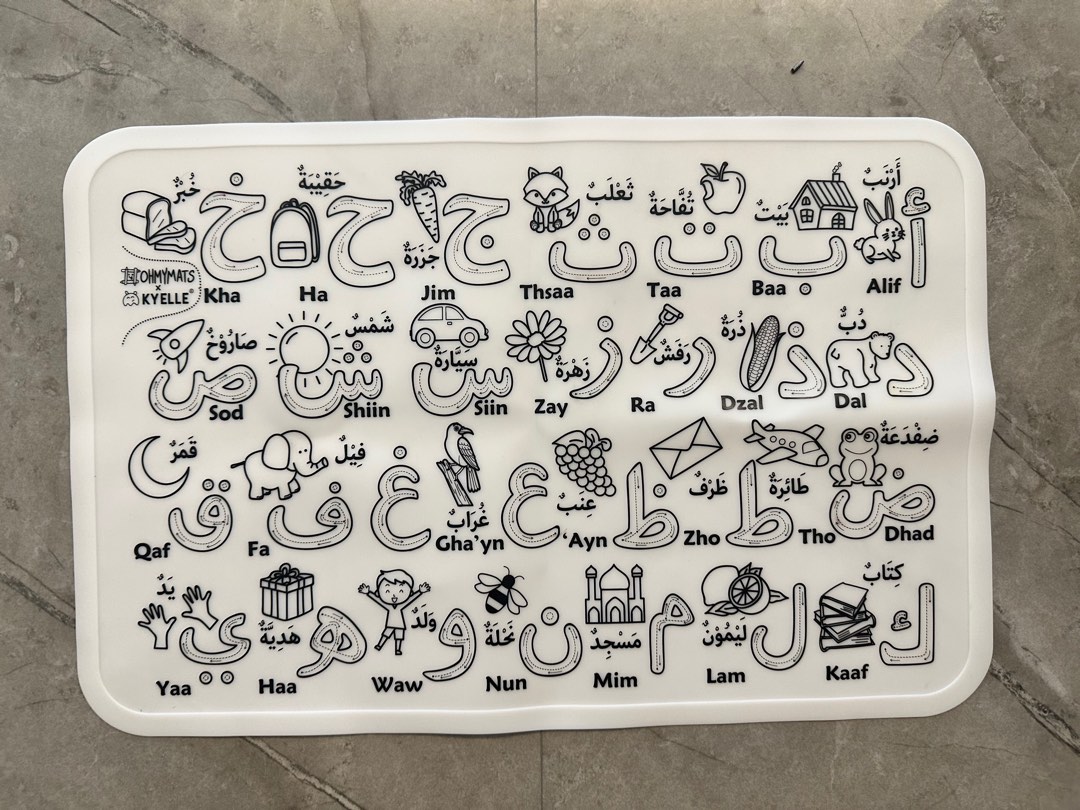 أَرْنَبٌ
أ
Alif
بَيْتٌ
ب
Baa
تُفَّاحَةٌ
ت
Taa
ثَعْلَبٌ
ث
Thsaa
جَزَرَةٌ
ج
Jim
حَقِيْبَةٌ
ح
Ha
خُبْزٌ
خ
Kha
OHMYMATS
x
KYELLE
دُبٌّ
د
Dal
ذُرَةٌ
ذ
Dzal
رَفَشٌ
ر
Ra
زَهْرَةٌ
ز
Zay
سَيَّارَةٌ
س
Siin
شَمْسٌ
ش
Shiin
صَارُوْخٌ
ص
Sod
ضِفْدَعَةٌ
ض
Dhad
طَائِرَةٌ
ط
Tho
ظَرْفٌ
ظ
Zho
عِنَبٌ
ع
‘Ayn
غُرَابٌ
غ
Gha’yn
فِيْلٌ
ف
Fa
قَمَرٌ
ق
Qaf
كِتَابٌ
ك
Kaaf
لَيْمُوْنٌ
ل
Lam
مَسْجِدٌ
م
Mim
نَحْلَةٌ
ن
Nun
وَلَدٌ
و
Waw
هَدِيَّةٌ
ه
Haa
يَدٌ
ي
Yaa